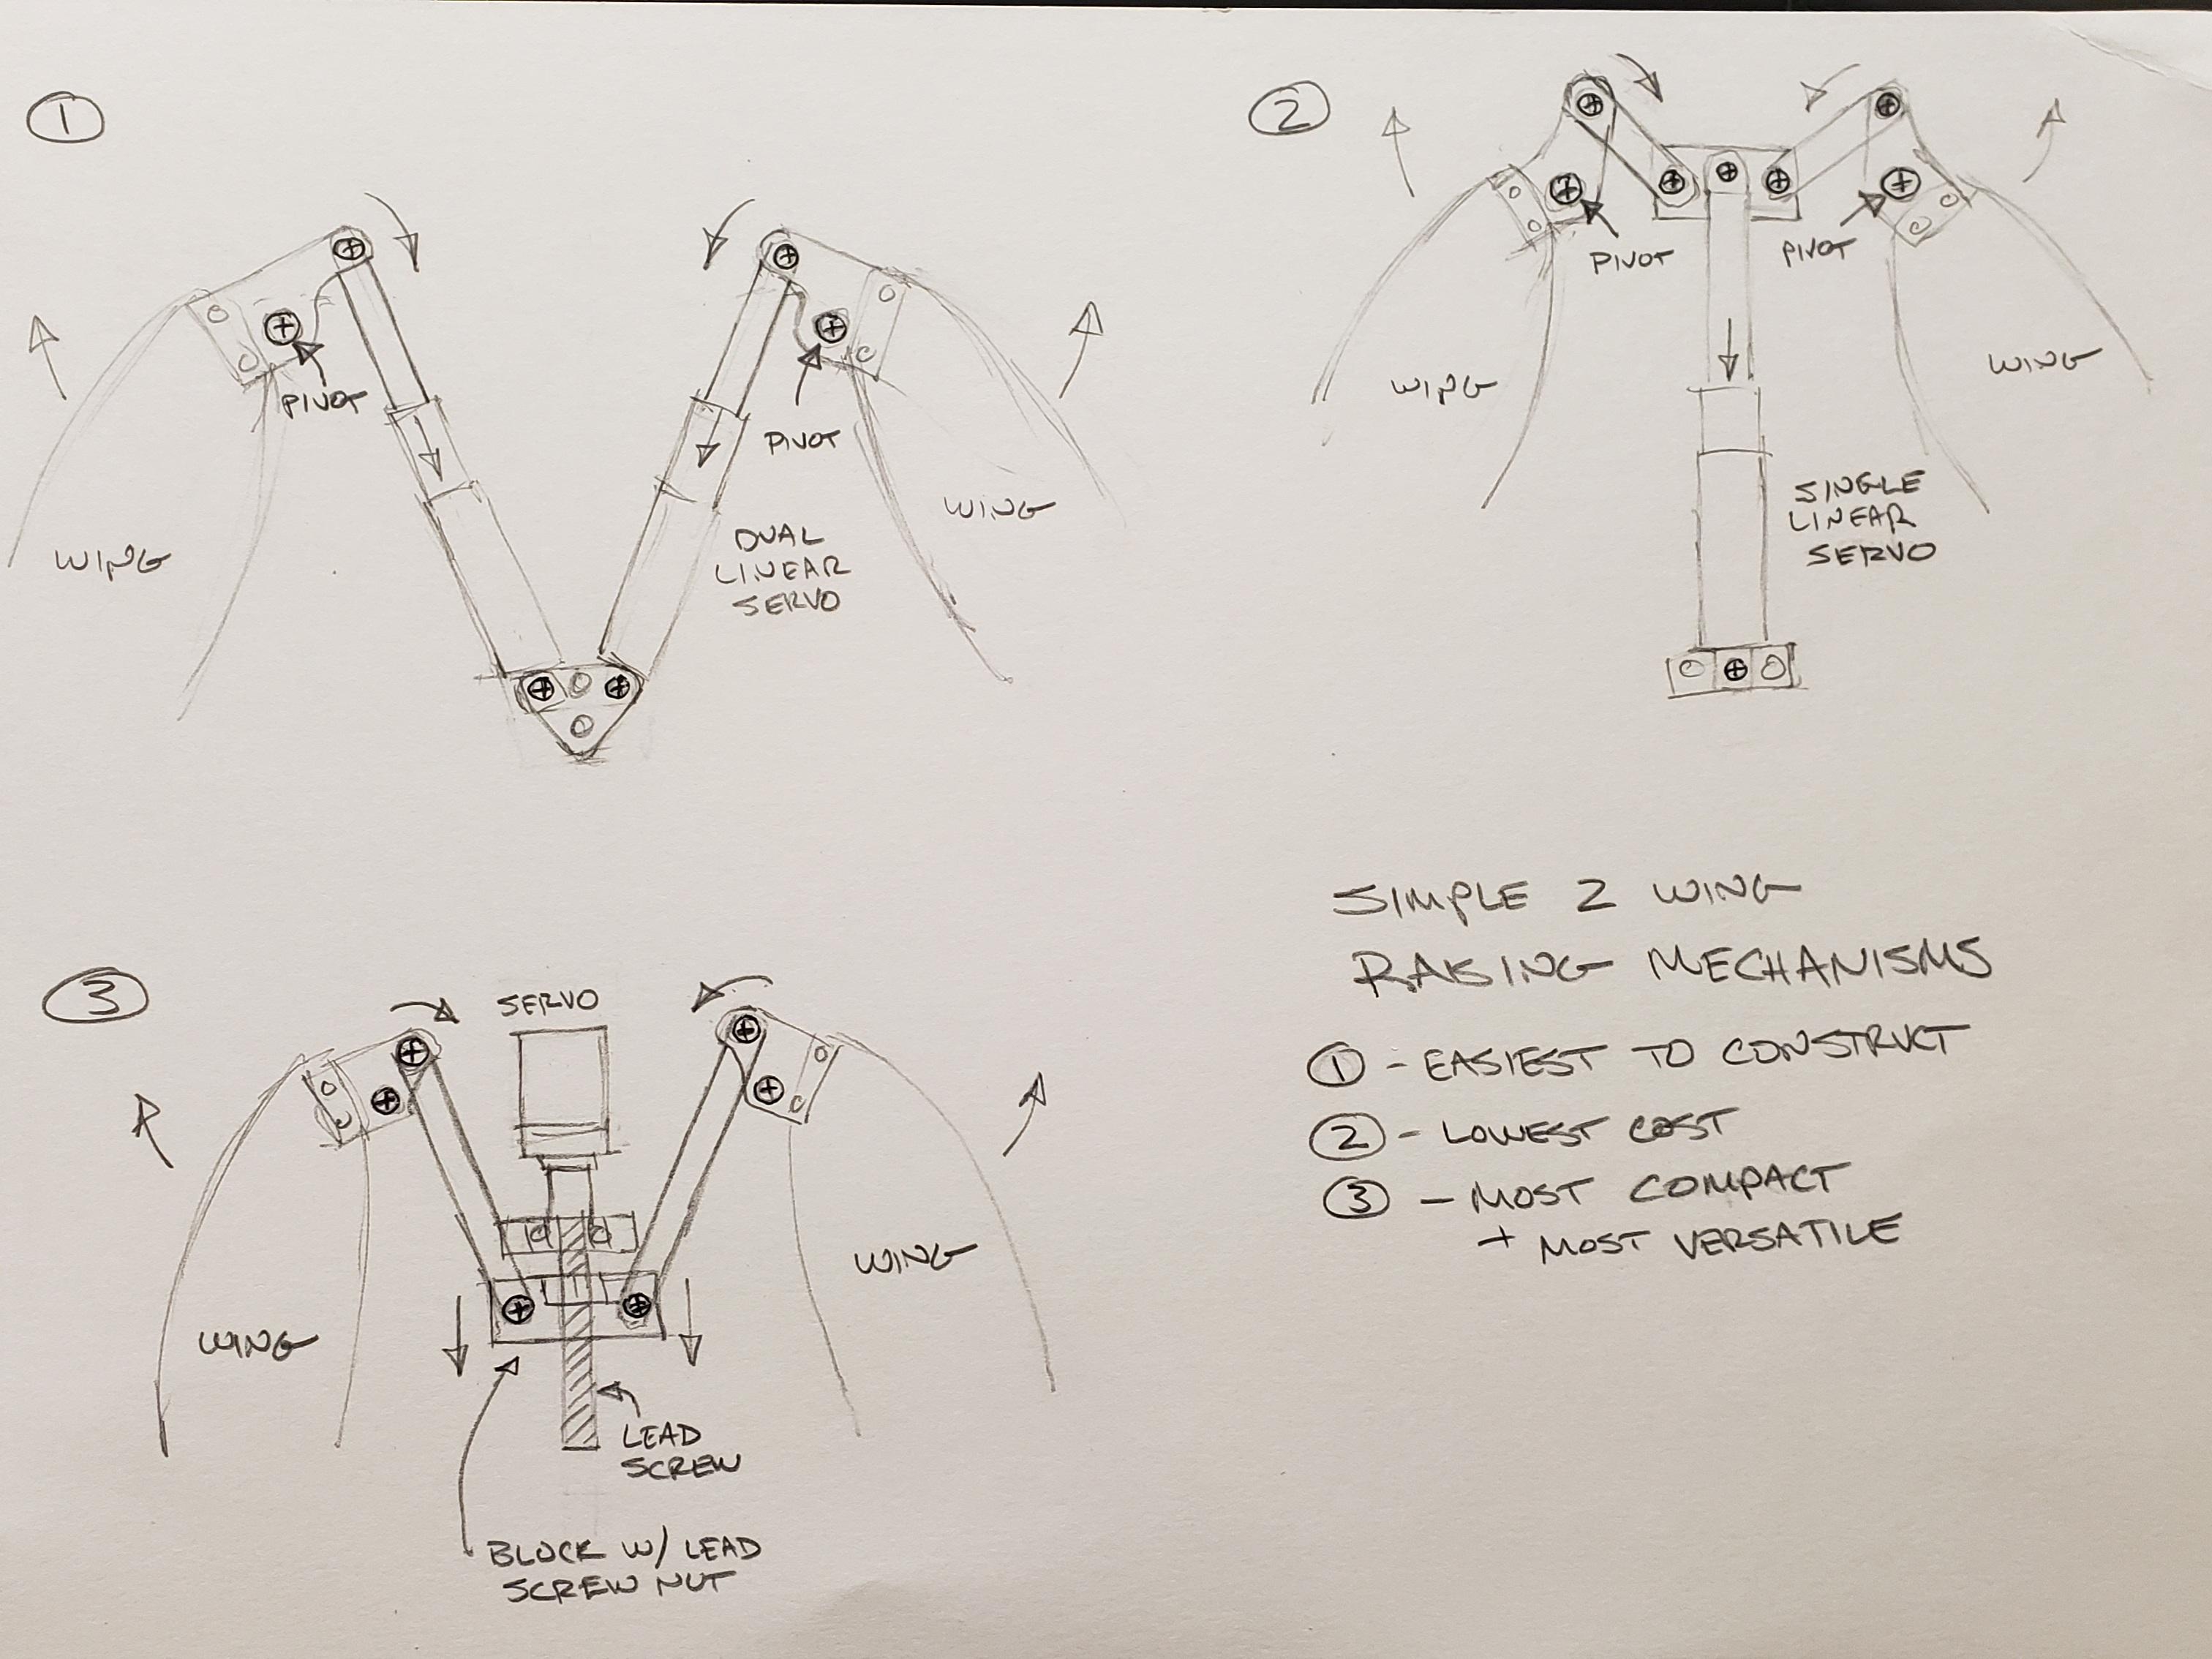 1
PIVOT
WING
PIVOT
WING
DUAL
LINEAR
SERVO
2
PIVOT
PIVOT
WING
WING
SINGLE
LINEAR
SERVO
3
SERVO
WING
WING
LEAD
SCREW
BLOCK W/ LEAD
SCREW NUT
SIMPLE 2 WING
RAISING MECHANISMS
1 - EASIEST TO CONSTRUCT
2 - LOWEST COST
3 - MOST COMPACT
+ MOST VERSATILE